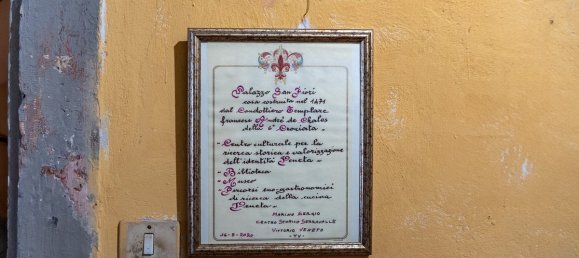 Palazzo San Fiori
casa costruita nel 1471
dal Condottiero Templare
francese André de Chales
della 6ª Crociata.
"Centro culturale per la
ricerca storica e valorizzazione
dell'identità Veneta"
- Biblioteca
- Museo
- Percorsi eno-gastronomici
di ricerca della cucina
Veneta -
MARINO SERGIO
CENTRO STORICO SERRAVALLE
VITTORIO VENETO
- TV -
16-8-2020